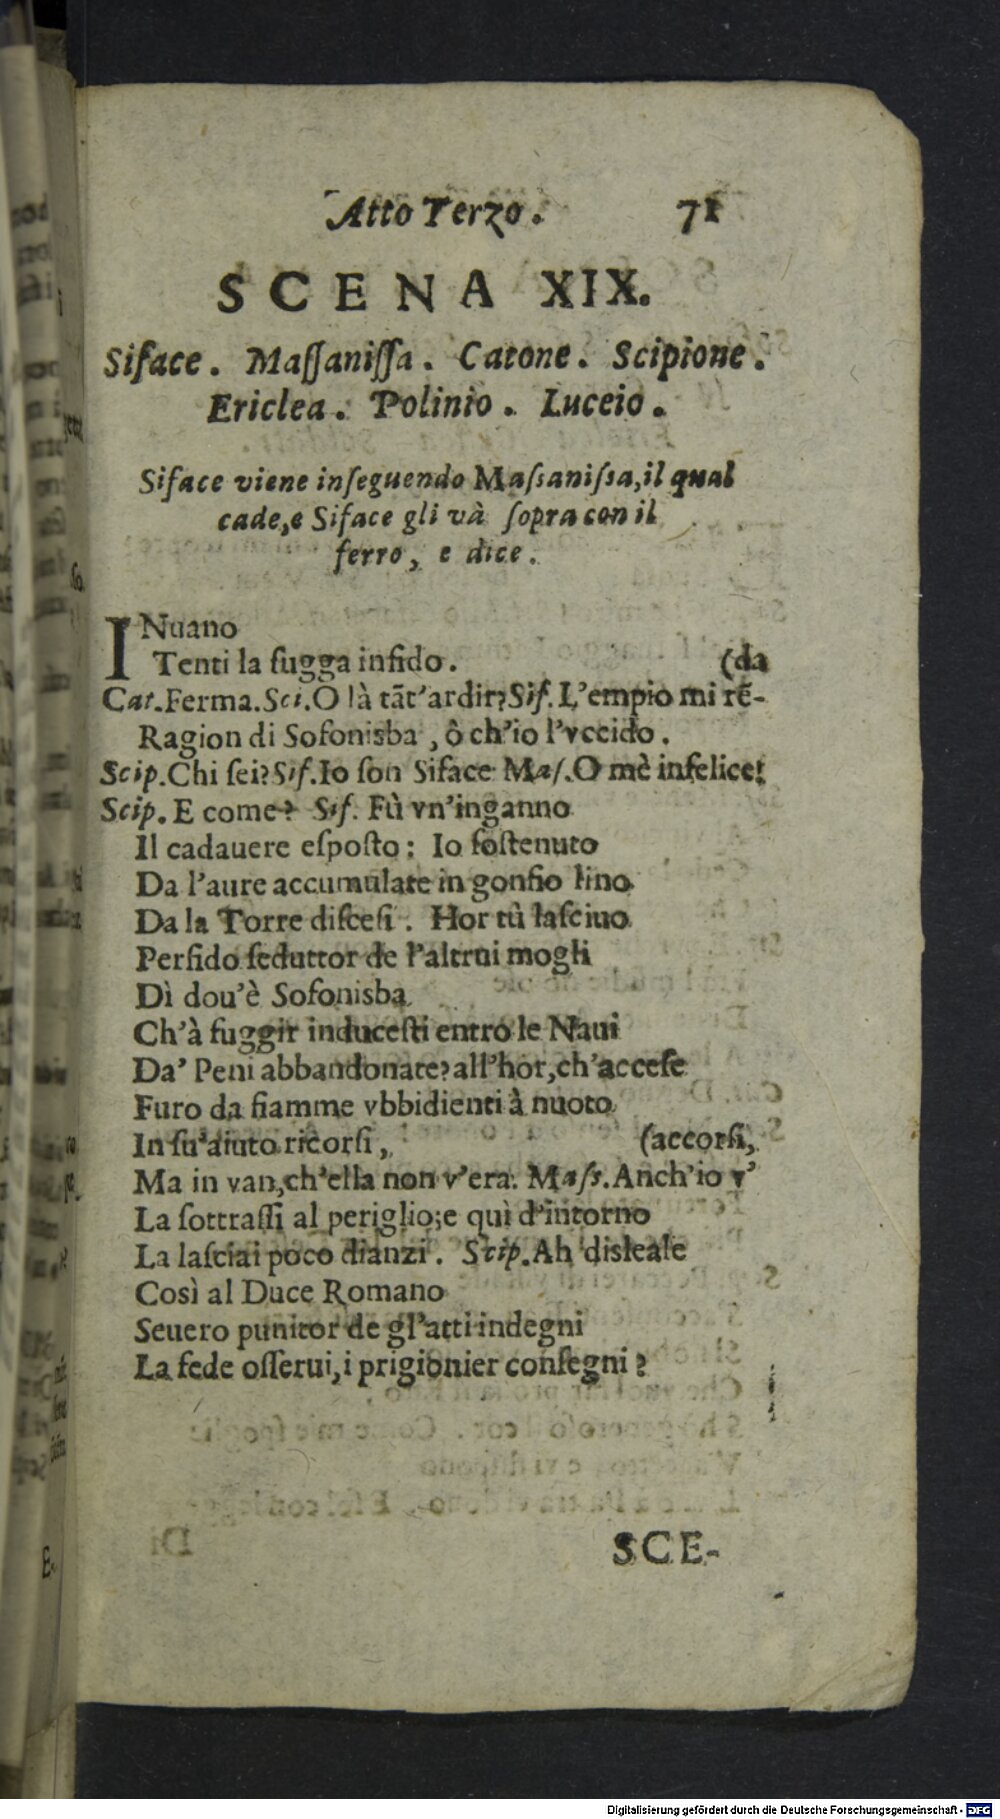 Atto Terzo. 71
SCENA XIX.
Siface. Maſſaniſſa. Catone. Scipione.
Ericlea. Polinio. Luceio.
Siface viene inſeguendo Maſsaniſsa, il qual
cade, e Siface gli và ſopra con il
ferro, e dice.
INuano
Tenti la fugga infido. (da
Cat. Ferma. Sci. O là tāt'ardir? Sif. L'empio mi rē-
Ragion di Sofonisba, ô ch'io l'vccido.
Scip. Chi ſei? Sif. Io ſon Siface Maſ. O mè infelice!
Scip. E come? Sif. Fù vn'inganno
Il cadauere eſpoſto: Io ſoſtenuto
Da l'aure accumulate in gonfio lino
Da la Torre diſceſi. Hor tù laſciuo
Perfido ſeduttor de l'altrui mogli
Dì dou'è Sofonisba
Ch'à fuggir induceſti entro le Naui
Da' Peni abbandonate? all'hor, ch'acceſe
Furo da fiamme vbbidienti à nuoto
In ſu'aiuto ricorſi, (accorſi,
Ma in van, ch'ella non v'era. Maſs. Anch'io v'
La ſottraſſi al periglio; e quì d'intorno
La laſciai poco dianzi. Scip. Ah disleale
Così al Duce Romano
Seuero punitor de gl'atti indegni
La fede oſſerui, i prigionier conſegni?
SCE-
Digitalisierung gefördert durch die Deutsche Forschungsgemeinschaft - DFG